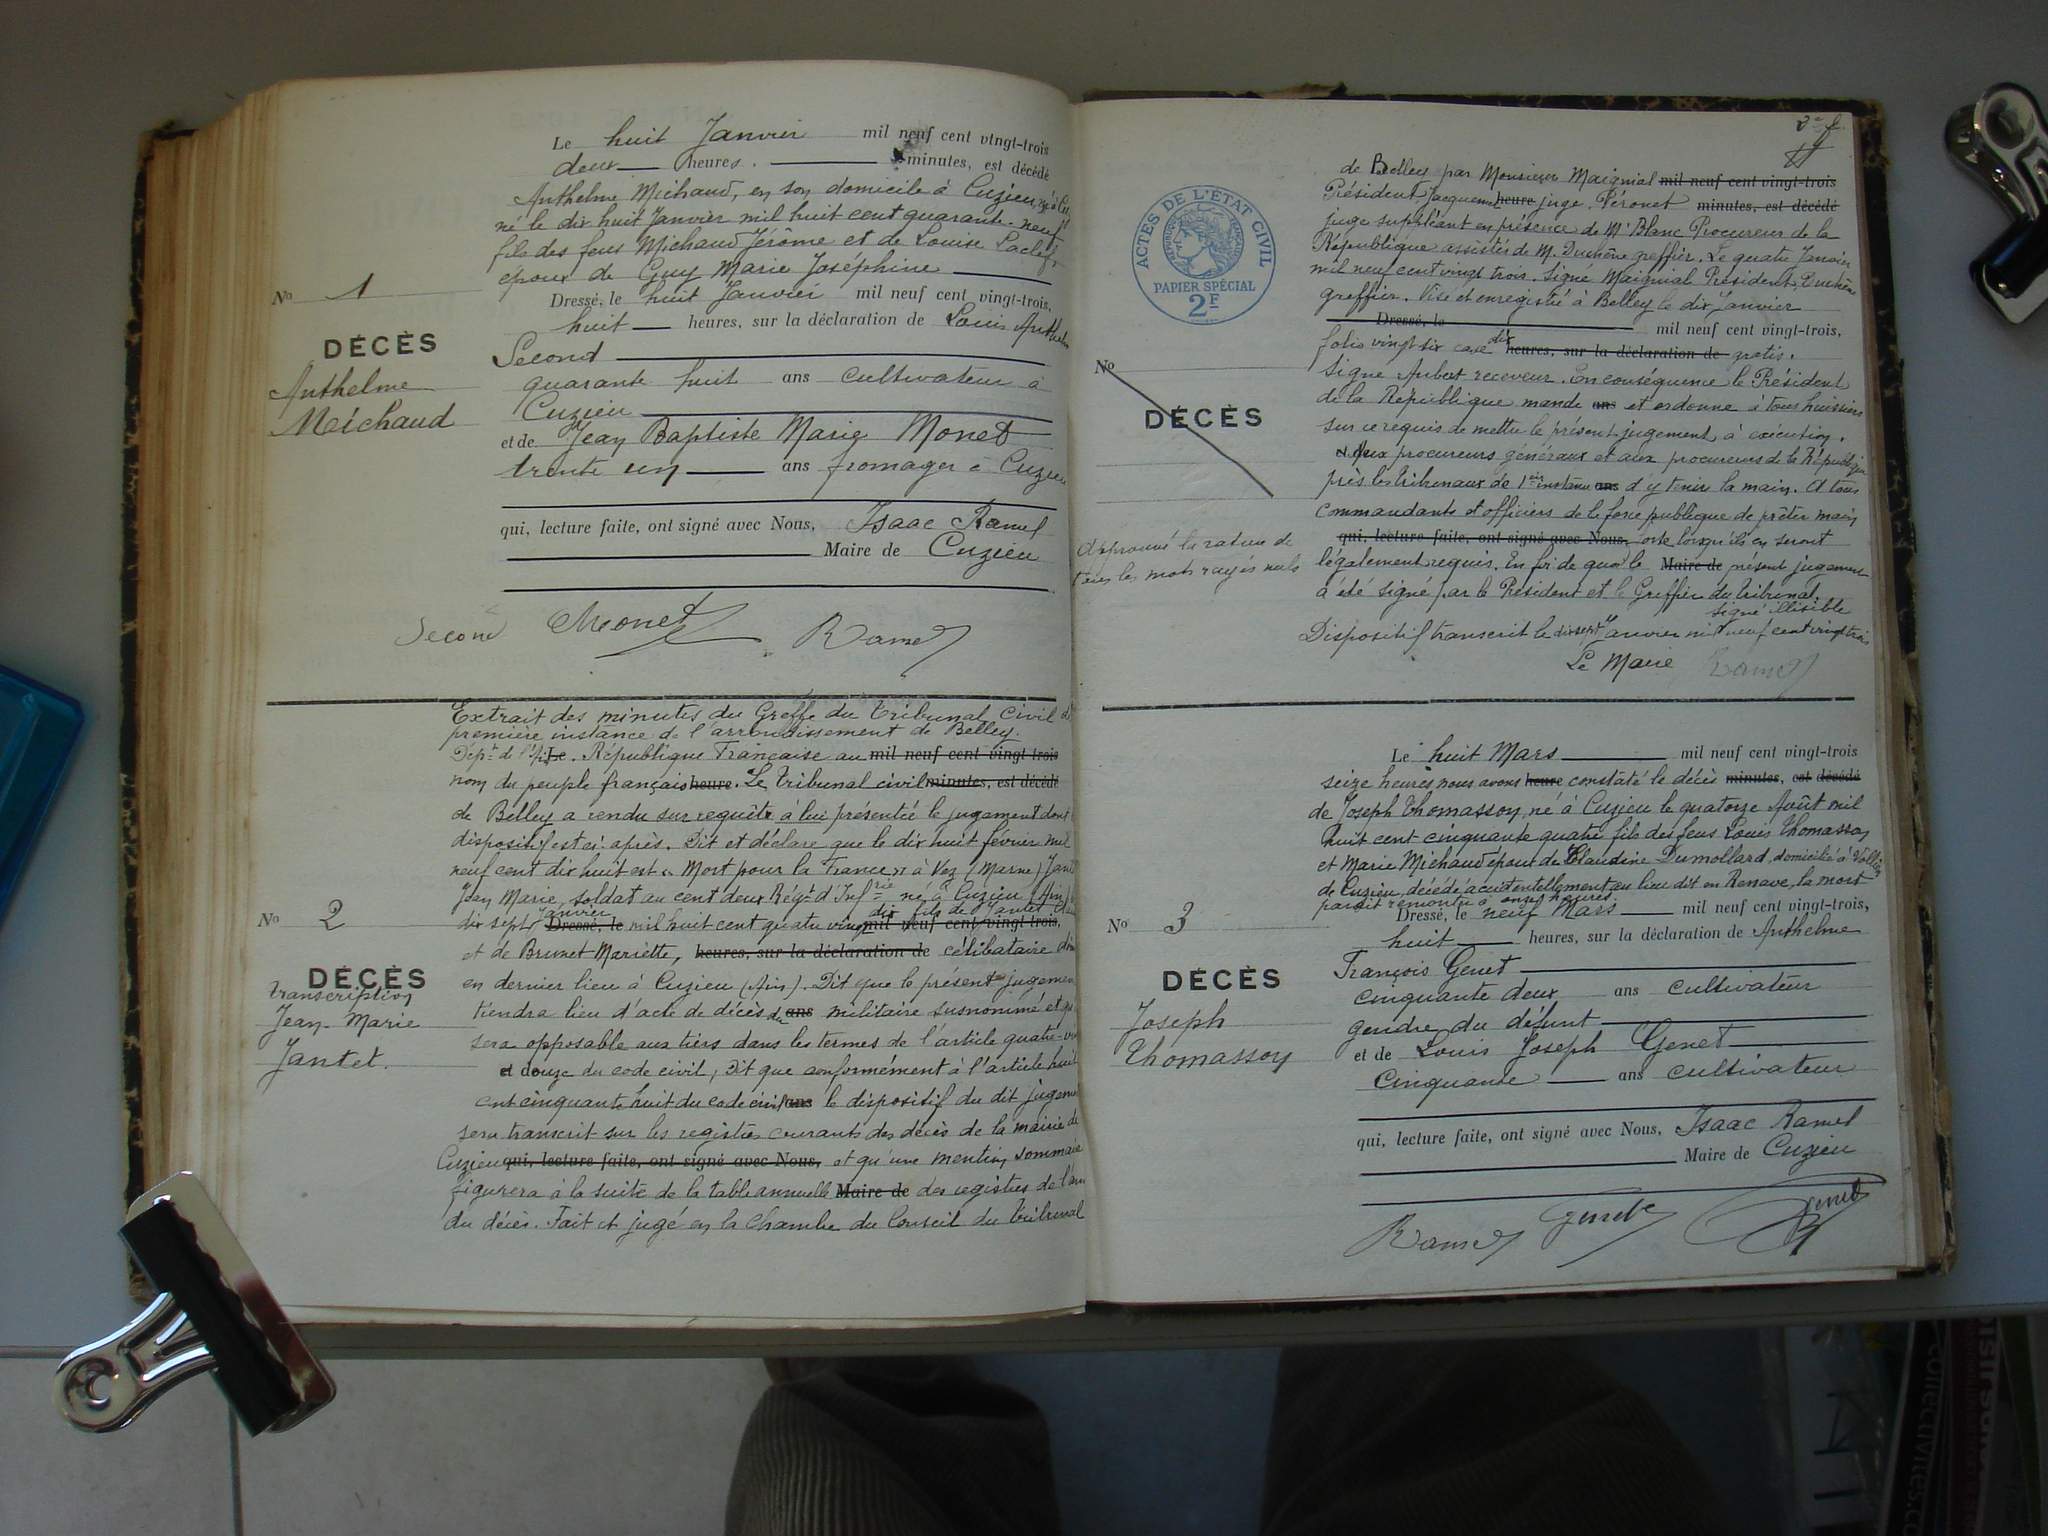 Le huit Janvier mil neuf cent vingt-trois
deux heures. minutes, est décédé
Anthelme Michaud, en son domicile à Cuzieu,
né le dix huit Janvier mil huit cent quarante-neuf
fils des feus Michaud Jérôme et de Louise
époux de Guy Marie Joséphine
No 1
Dressé, le huit Janvier mil neuf cent vingt-trois,
huit heures, sur la déclaration de Louis Anthelm
DÉCÈS
Anthelme
Michaud
Second
quarante huit ans cultivateur à
Cuzieu
et de Jean Baptiste Marie Monet
trente un ans fromager à Cuzieu
qui, lecture faite, ont signé avec Nous, Isaac Ramel
Maire de Cuzieu
Second Monet Ramel
Extrait des minutes du Greffe du Tribunal Civil de
première instance de l'arrondissement de Belley.
Dépt de l'Ain Le. République Française au mil neuf cent vingt trois
nom du peuple français heure. Le Tribunal civil minutes, est décédé
de Belley a rendu sur requête à lui présentée le jugement dont
dispositif est ci-après. Dit et déclare que le dix huit février mil
neuf cent dix huit est « Mort pour la France » à Vez (Marne) Jantet
Jean Marie, soldat au cent deux Régt d'Infrie né à Cuzieu (Ain)
dix sept Janvier Dressé, le mil huit cent quatre vingt dix fils de Jantet mil neuf cent vingt trois,
et de Brunet Mariette, heures, sur la déclaration de célibataire
en dernier lieu à Cuzieu (Ain). Dit que le présent jugement
tiendra lieu d'acte de décès du ans militaire susnommé et
sera opposable aux tiers dans les termes de l'article quatre-vin
et douze du code civil, Dit que conformément à l'article huit
cent cinquante huit du code civil ans le dispositif du dit jugement
sera transcrit sur les registres courants des décès de la mairie de
Cuzieu qui, lecture faite, ont signé avec Nous, et qu'une mention sommaire
figurera à la suite de la table annuelle Maire de des registres de l'an
du décès. Fait et jugé en la Chambre du Conseil du Tribunal
No 2
DÉCÈS
transcription
Jean-Marie
Jantet.
ACTES DE L'ÉTAT CIVIL
PAPIER SPÉCIAL
2F
de Belley par Monsieur Maignial mil neuf cent vingt-trois
Président, Jacquemet heure juge. Péronet minutes, est décédé
juge suppléant en présence de Mr Blanc Procureur de la
République assistés de M. Duchêne greffier. Le quatre Janvier
mil neuf cent vingt trois. Signé Maignial Président, Duchêne
greffier. Visé et enregistré à Belley le dix Janvier
Dressé, le mil neuf cent vingt-trois,
folio vingt six case dix heures, sur la déclaration de gratis.
Signé Aubert receveur. En conséquence le Président
de la République mande ans et ordonne à tous huissiers
sur ce requis de mettre le présent jugement à exécution.
et Aux procureurs généraux et aux procureurs de la République
près les tribunaux de 1ère instance ans d'y tenir la main. A tous
commandants et officiers de la force publique de prêter main
qui, lecture faite, ont signé avec Nous, forte lorsqu'ils en seront
légalement requis. En foi de quoi le Maire de présent jugement
a été signé par le Président et le Greffier du tribunal.
signé illisible
Dispositif transcrit le dix sept Janvier mil neuf cent vingt trois
Le Maire Ramel
No
DÉCÈS
Approuvé la rature de
tous les mots rayés nuls
Le huit Mars mil neuf cent vingt-trois
seize heures nous avons heure constaté le décès minutes, est décédé
de Joseph Thomasson, né à Cuzieu le quatorze Août mil
huit cent cinquante quatre fils des feus Louis Thomasson
et Marie Michaud époux de Claudine Dumollard, domicilié à
de Cuzieu, décédé accidentellement au lieu dit en Renave, la mort
parait remonter à onze heures
No 3
Dressé, le neuf Mars mil neuf cent vingt-trois,
huit heures, sur la déclaration de Anthelme
DÉCÈS
Joseph
Thomasson
François Genet
cinquante deux ans cultivateur
gendre du défunt
et de Louis Joseph Genet
Cinquante ans cultivateur
qui, lecture faite, ont signé avec Nous, Isaac Ramel
Maire de Cuzieu
Ramel Genet Genet